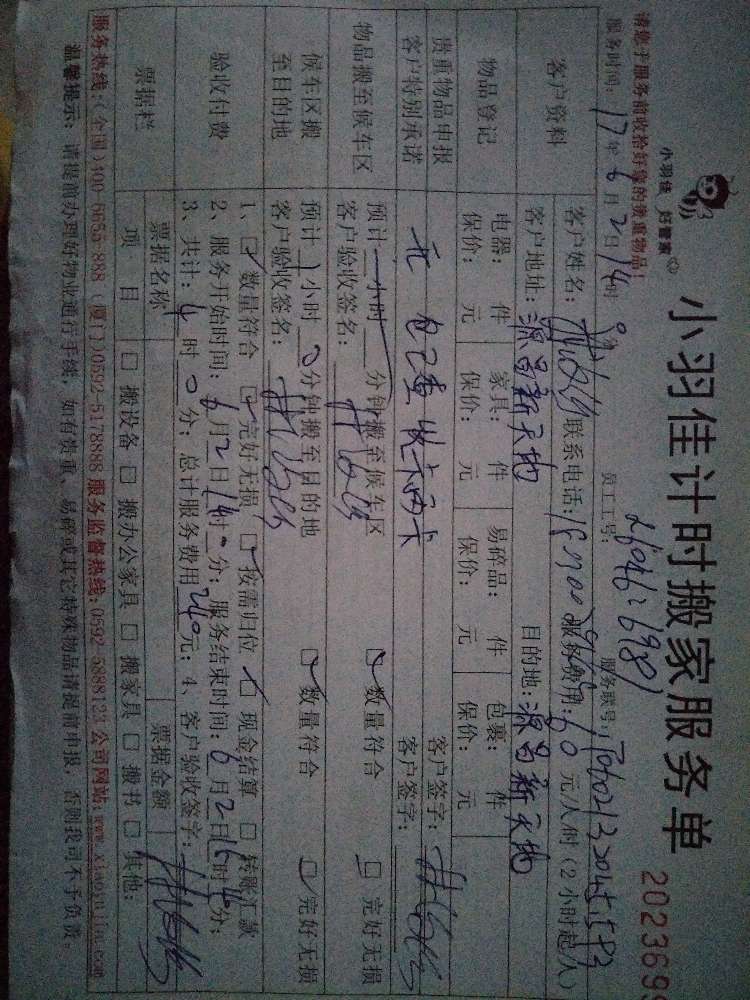 小羽佳 好管家
小羽佳计时搬家服务单
202369
请您于服务前收拾好您的贵重物品！
服务时间：17年6月2日14时 分
员工工号：
服务联号：
客户资料
客户姓名：
联系电话：
服务费用：60元/人/时（2小时起/人）
客户地址：源昌新天地
目的地：源昌新天地
物品登记
电器： 件 家具： 件 易碎品： 件 包裹： 件
保价： 元 保价： 元 保价： 元 保价： 元
贵重物品申报 无 客户签字：
客户特别承诺 客户签字：
物品搬至候车区
预计 小时 分钟搬至候车区 数量符合 完好无损
客户验收签名：
候车区搬至目的地
预计1小时0分钟搬至目的地 数量符合 完好无损
客户验收签名：
验收付费
1、 数量符合 完好无损 按需归位 现金结算 转账汇款
2、服务开始时间：6月2日14时0分；服务结束时间：6月2日16时 分；
3、共计：4时0分；总计服务费用240元；4、客户验收签字：
票据栏
票据名称 票据金额
项目 搬设备 搬办公家具 搬家具 搬书 其他：
服务热线：（全国）400-5655-888（厦门）0592-5178888 服务监督热线：0592-5888123 公司网站：www.xiaoyujia.com
温馨提示：请提前办理好物业通行手续，如有贵重、易碎或其它特殊物品请提前申报，否则我司不予负责。